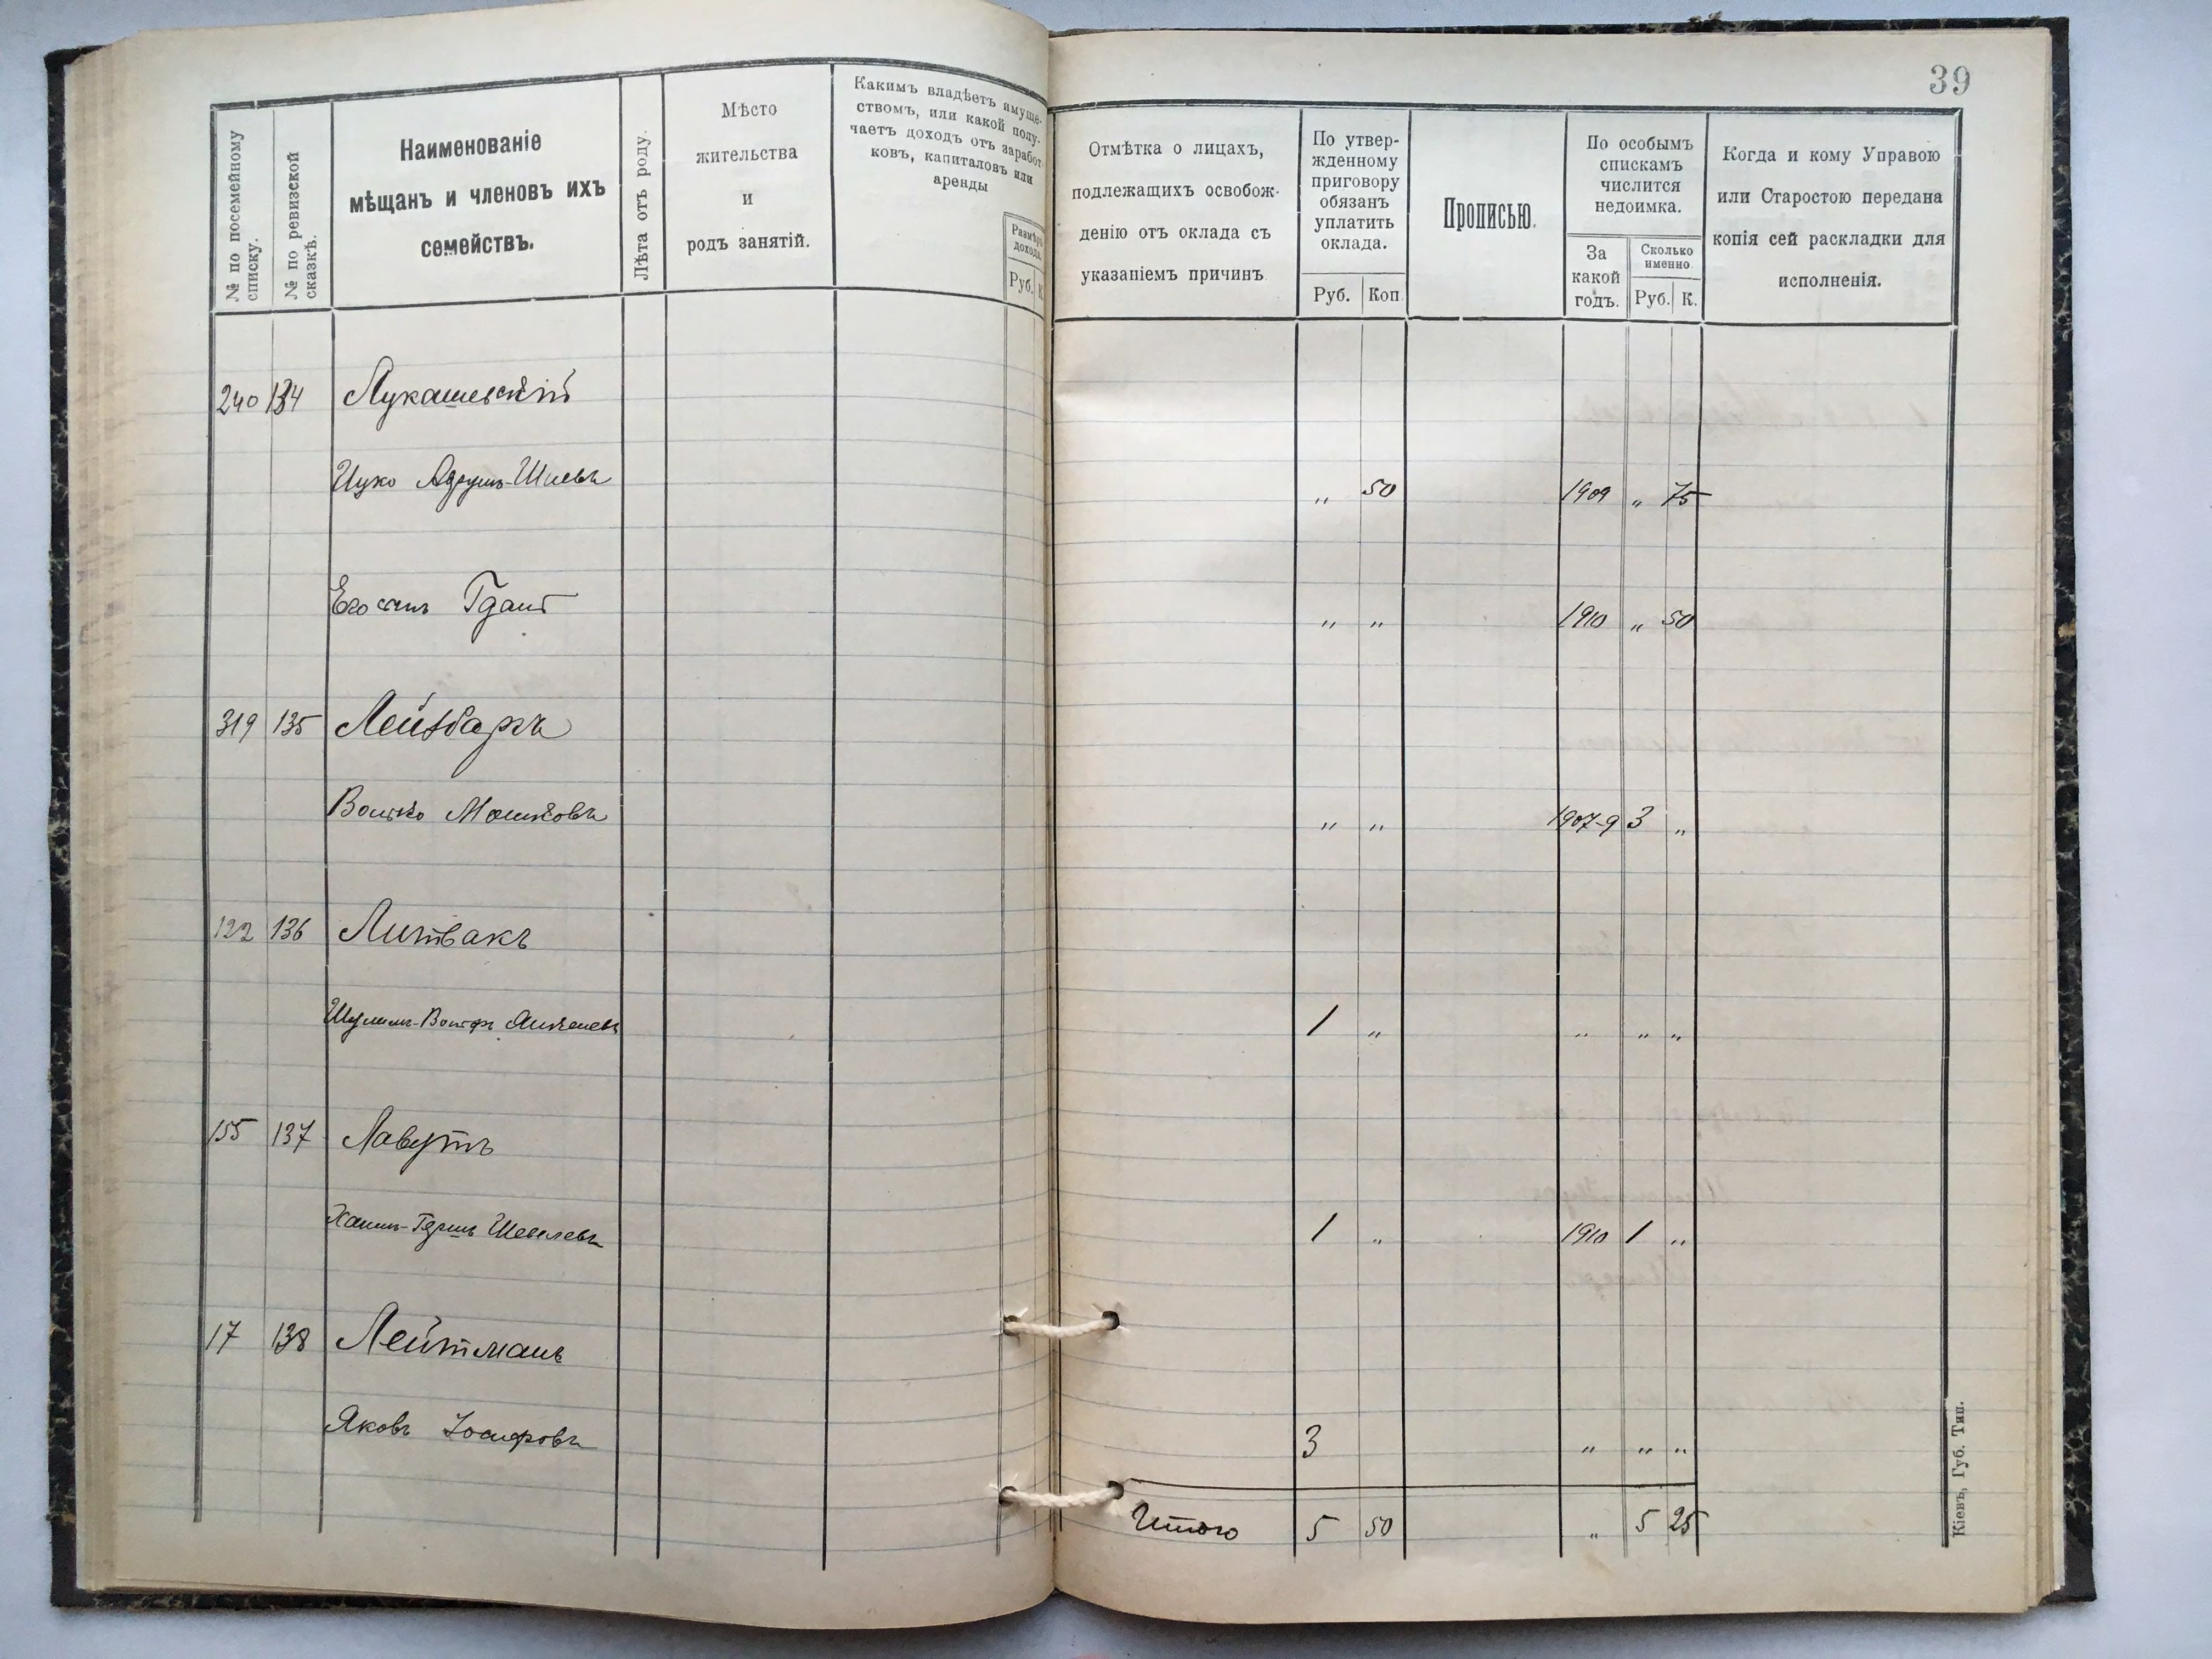 39
№ по посемейному
списку.
№ по ревизской
сказкѣ.
Наименованіе
мѣщанъ и членовъ ихъ
семействъ.
Лѣта отъ роду.
Мѣсто
жительства
и
родъ занятій.
Какимъ владѣетъ имуще-
ствомъ, или какой полу-
чаетъ доходъ отъ заработ
ковъ, капиталовъ или
аренды
Размѣръ
дохода.
Руб. К.
Отмѣтка о лицахъ,
подлежащихъ освобож-
денію отъ оклада съ
указаніемъ причинъ
По утвер-
жденному
приговору
обязанъ
уплатить
оклада.
Руб. Коп.
Прописью.
По особымъ
спискамъ
числится
недоимка.
За
какой
годъ.
Сколько
именно.
Руб. К.
Когда и кому Управою
или Старостою передана
копія сей раскладки для
исполненія.
240 134 Лукашевскій
Ицко -Шиевъ „ 50 1909 „ 75
Его сынъ „ „ 1910 „ 50
319 135
Волько Мошковъ „ „ 1907-9 3 „
122 136 Литвакъ
Шулимъ-Вольфъ Анкелевъ 1 „ „ „ „
155 137 Лавутъ
Хаимъ-Гершъ Шевелевъ 1 „ 1910 1 „
17 138 Лейтманъ
Яковъ Іосифовъ 3 „ „ „
Итого 5 50 „ 5 25
Кіевъ, Губ. Тип.